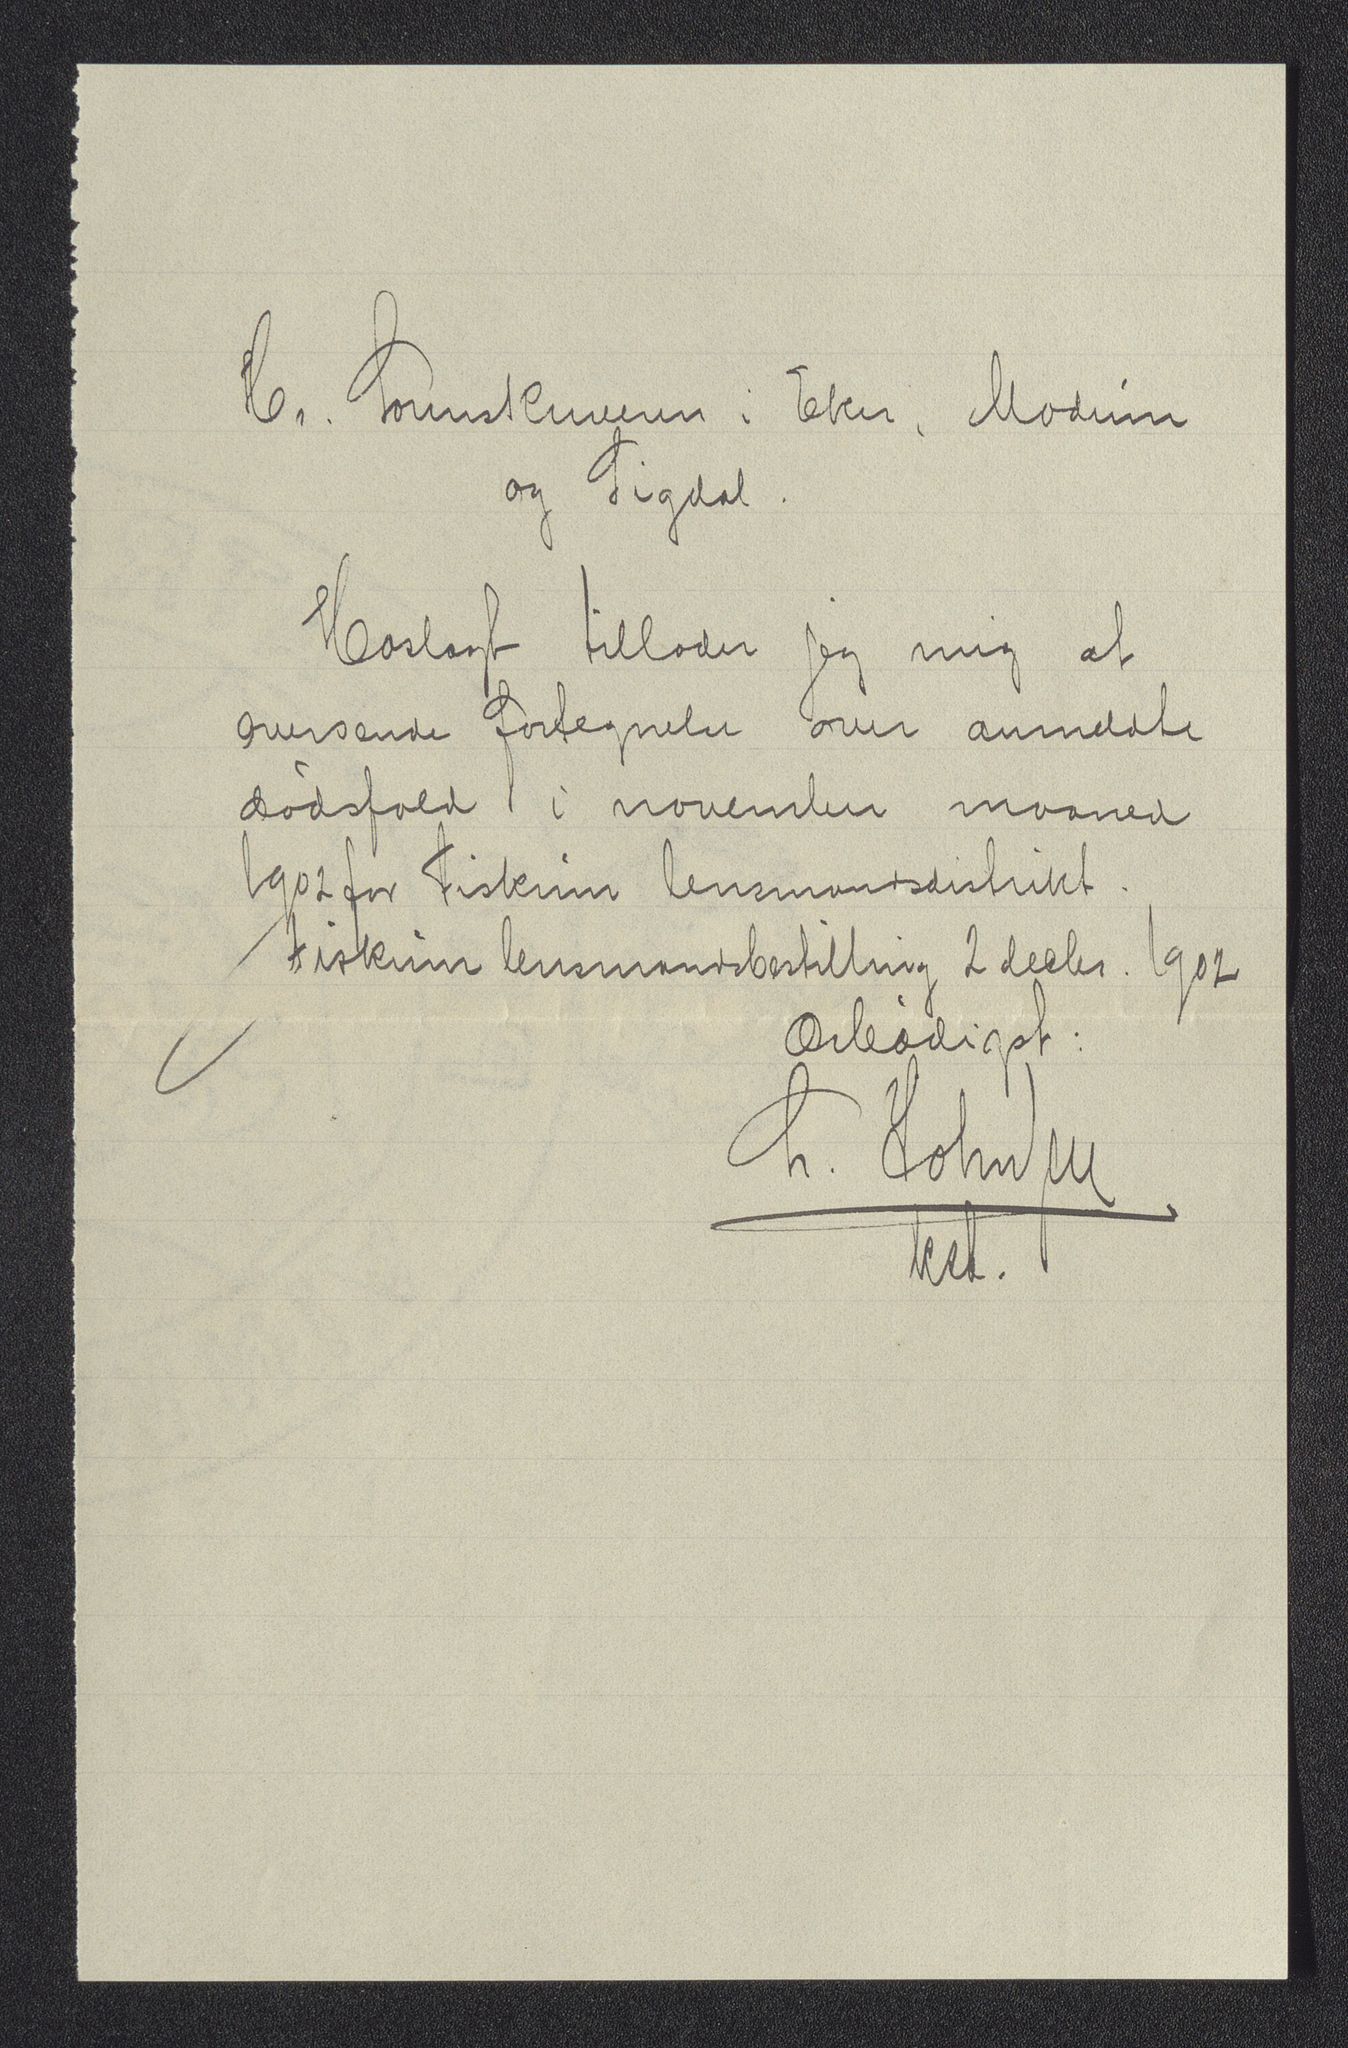 Hr. Sorenskriveren i Eker, Modum
og Sigdal.
Hoslagt tillader jeg mig at
oversende fortegnelse over anmeldte
dödsfald i november maaned
1902 for Fiskum lensmandsdistrikt.
Fiskum lensmandsbestilling 2 decbr. 1902
Ærbödigst:
kst.